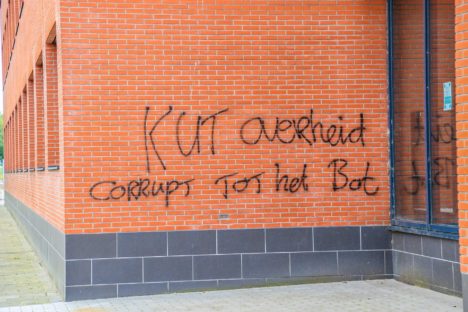 KUT overheid
CORRUPT TOT het Bot